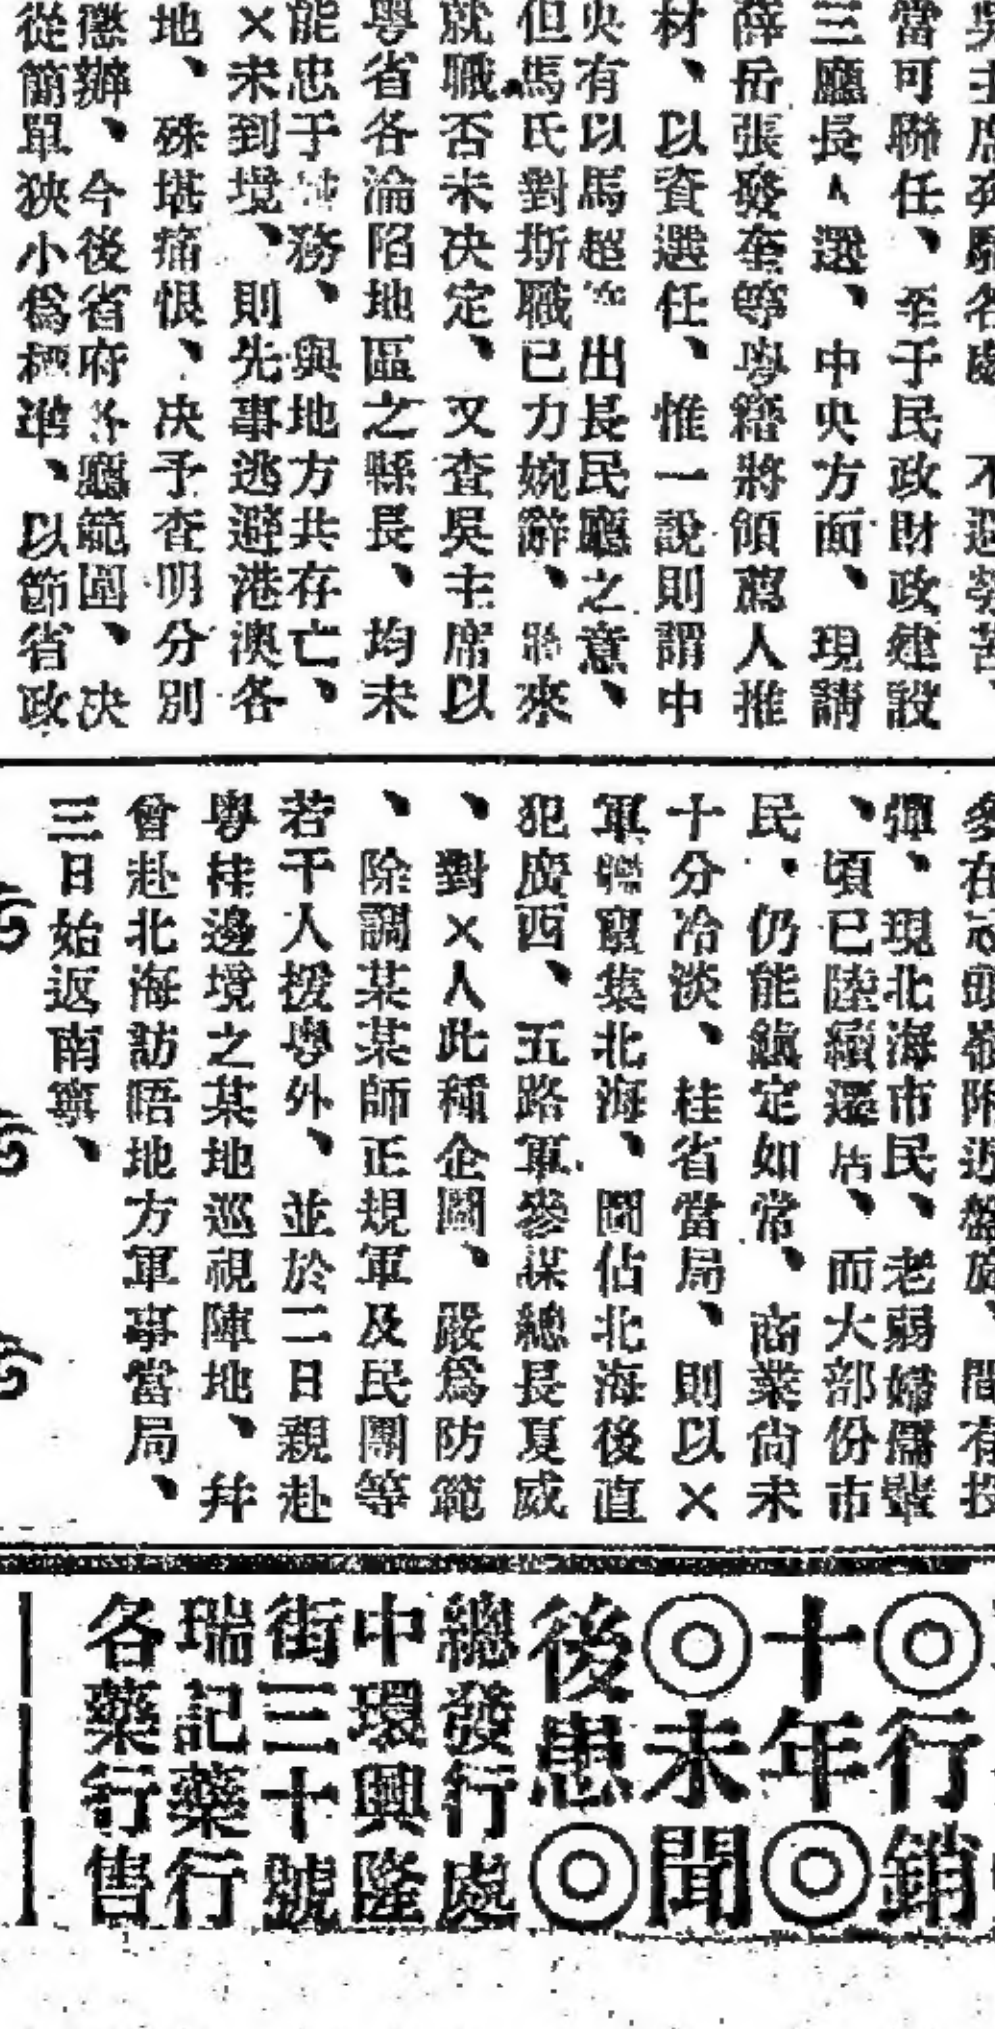 吳主席奔驅各處、不過勞苦、
當可聯任、至于民政財政建設
三廳長人選、中央方面、現請
薛岳張發奎等粵籍將領薦人推
材、以資選任、惟一說則謂中
央有以馬超出長民廳之意、
但馬氏對斯職已力婉辭、將來
就職否未决定、又查吳主席以
粵省各淪陷地區之縣長、均未
能忠于務、與地方共存亡、
×未到境、則先事逃避港澳各
地、殊堪痛恨、决予查明分別
懲辦、今後省府各廳範圍、决
從簡單狹小爲標準、以節省政
多在冠頭嶺附近盤旋、間有投
彈、現北海市民、老弱婦孺輩
、頃已陸續還居、而大部份市
民、仍能鎮定如常、商業尙未
十分冷淡、桂省當局、則以×
軍艦竄集北海、圖佔北海後直
犯廣西、五路軍參謀總長夏威
、對×人此種企圖、嚴爲防範
、除調某某師正規軍及民團等
若干人援粵外、並於二日親赴
粵桂邊境之某地巡視陣地、幷
曾赴北海訪晤地方軍事當局、
三日始返南寧、
◎行銷
十年◎
◎未聞
後患◎
總發行處
中環興隆
街三十號
瑞記藥行
各藥行售